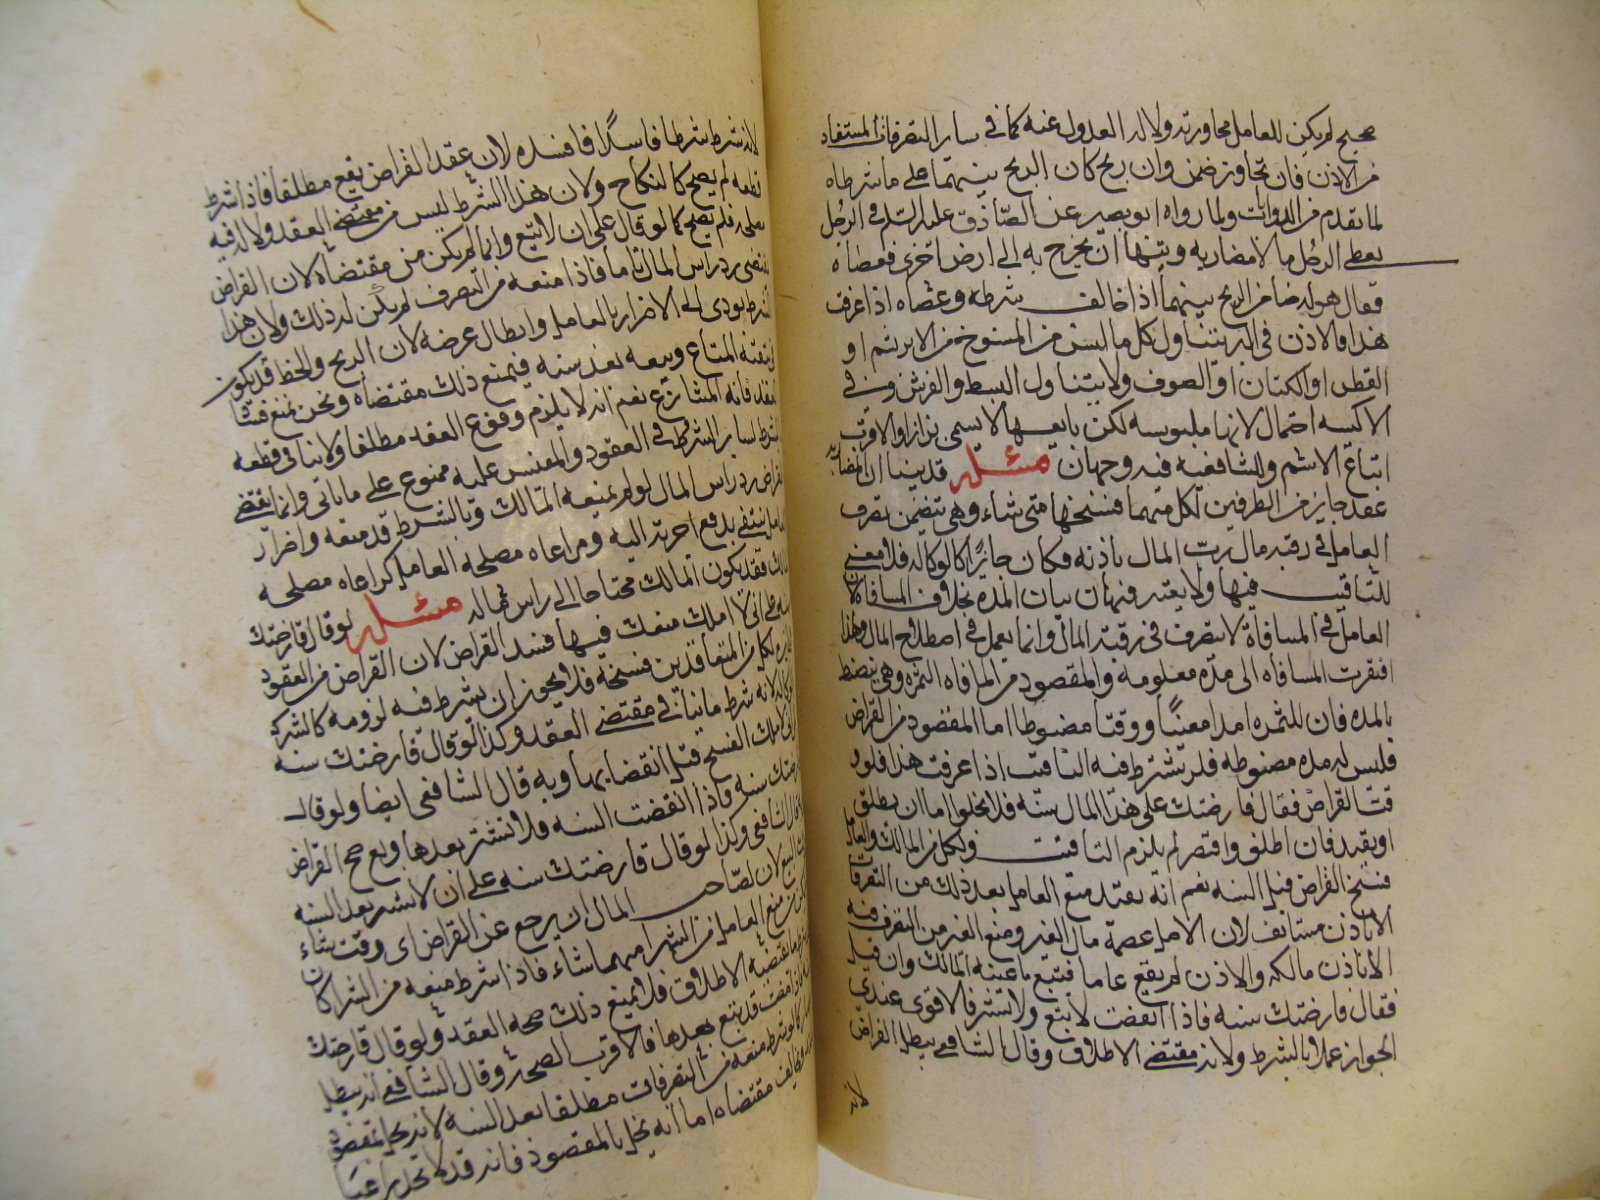 صحيح لم يكن للعامل مجاوزته ولا له العدول عنه كما في ساير التصرفات المستفاد
من الاذن فان تجاوز ضمن وان ربح كان الربح بينهما على ما شرطاه
لما تقدم من الروايات ولما رواه ابو بصير عن الصادق عليه السلم في الرجل
يعطى الرجل مالا مضاربه وينهاه ان يخرج به الى ارض اخرى فعصاه
فقال هو له ضامن الربح بينهما اذا خالف شرطه وعصاه اذا عرفت
هذا فالاذن في البز يتناول كل ما يلبس من المنسوج من الابريشم او
القطن او الكتان او الصوف ولا يتناول البسط والفرش وفي
الاكسيه احتمال لانها ملبوسه لكن بايعها لا يسمى بزازا والاقرب
اتباع الاسم وللشافعيه فيه وجهان مسئله قد بينا ان المضاربه
عقد جايز من الطرفين لكل منهما فسخها متى شاء وهي تتضمن تصرف
العامل في رقبه مال رب المال باذنه فكان جايزا كالوكاله فلا معنى
للتاقيت فيها ولا يعتبر فيها بيان المده بخلاف المساقاه لان
العامل في المساقاة لا يتصرف في رقبة المال وانما يعمل في اصطلاح المال ولهذا
افتقرت المساقاه الى مدة معلومة والمقصود من المساقاه الثمره وهي تنضبط
بالمده فان للثمره امدا معينا ووقتا مضبوطا اما المقصود من القراض
فليس له مده مضبوطه فلم يشترط فيه التاقيت اذا عرفت هذا فلو
وقت القراض فقال قارضتك على هذا المال سنة فلا يخلوا اما ان يطلق
او يقيد فان اطلق واقتصر لم يلزم التاقيت ولكل من المالك والعامل
فسخ القراض قبل السنه نعم انه يفيد منع العامل بعد ذلك من التصرف
الا باذن مستانف لان الاصل عصمة مال الغير ومنع الغير من التصرف فيه
الا باذن مالكه والاذن لم يقع عاما فيتبع ما عينه المالك وان قيد
فقال قارضتك سنه فاذا انقضت لا تبع ولا تشتر فالاقوى عندي
الجواز عملا بالشرط ولانه مقتضى الاطلاق وقال الشافعي يبطل القراض
لانه
لانه شرط شرطا فاسدا فافسده لان عقد القراض يقع مطلقا فاذا شرط
قطعه لم يصح كالنكاح ولان هذا الشرط ليس من مقتضى العقد ولا له فيه
مصلحه فلم يصح كما لو قال على ان لا تبيع وانما لم يكن من مقتضاه لان القراض
يقتضى رد راس المال تاما فاذا منعه من التصرف لم يكن له ذلك ولان هذا
الشرط يودى الى الاضرار بالعامل وابطال غرضه لان الربح والحظ قد يكون
في تبقيه المتاع وبيعه بعد سنه فيمنع ذلك مقتضاه ونحن نمنع
العقد فانه المتنازع نعم انه لا يلزم وقوع العقد مطلقا ولا ينافي قطعه
الشرط لساير الشروط في العقود والمقيس عليه ممنوع على ما ياتي وانما يقتضي
القراض رد راس المال لو لم يمنعه المالك وبالشرط قد منعه واضرار
العامل ينتفي بدفع اجرته اليه ومراعاه مصلحه العامل كمراعاه مصلحه
المالك فقد يكون المالك محتاجا الى راس ماله مسئله لو قال قارضتك
سنه على اني لا املك منعك فيها فسد القراض لان القراض من العقود
الجايزه لكل من المتعاقدين فسخه فلا يجوز ان يشرط فيه لزومه كالشركه
والوكاله لانه شرط ما ينافي مقتضى العقد وكذا لو قال قارضتك سنه
على اني لا املك الفسخ قبل انقضايها وبه قال الشافعي ايضا ولو قال
قارضتك سنه فاذا انقضت السنه فلا تشتر بعدها وبع صح القراض
وبه قال الشافعي وكذا لو قال قارضتك سنه على ان لا تشتر بعد السنه
ولك البيع لان لصاحب المال ان يرجع عن القراض اى وقت شاء
ويتمكن من منع العامل من الشرا مهما شاء فاذا شرط منعه من الشرا كان
قد شرط ما يقتضيه الاطلاق فلا يمنع ذلك صحه العقد ولو قال قارضتك
سنه فاذا مضت فلا تبع بعدها فالاقرب الصحة وقال الشافعي انه يبطل
كما لو شرط منعه من التصرفات مطلقا بعد السنه لانه يخل بمقصود
العقد ويخالف مقتضاه اما انه يخل بالمقصود فانه قد لا يجد راغبا